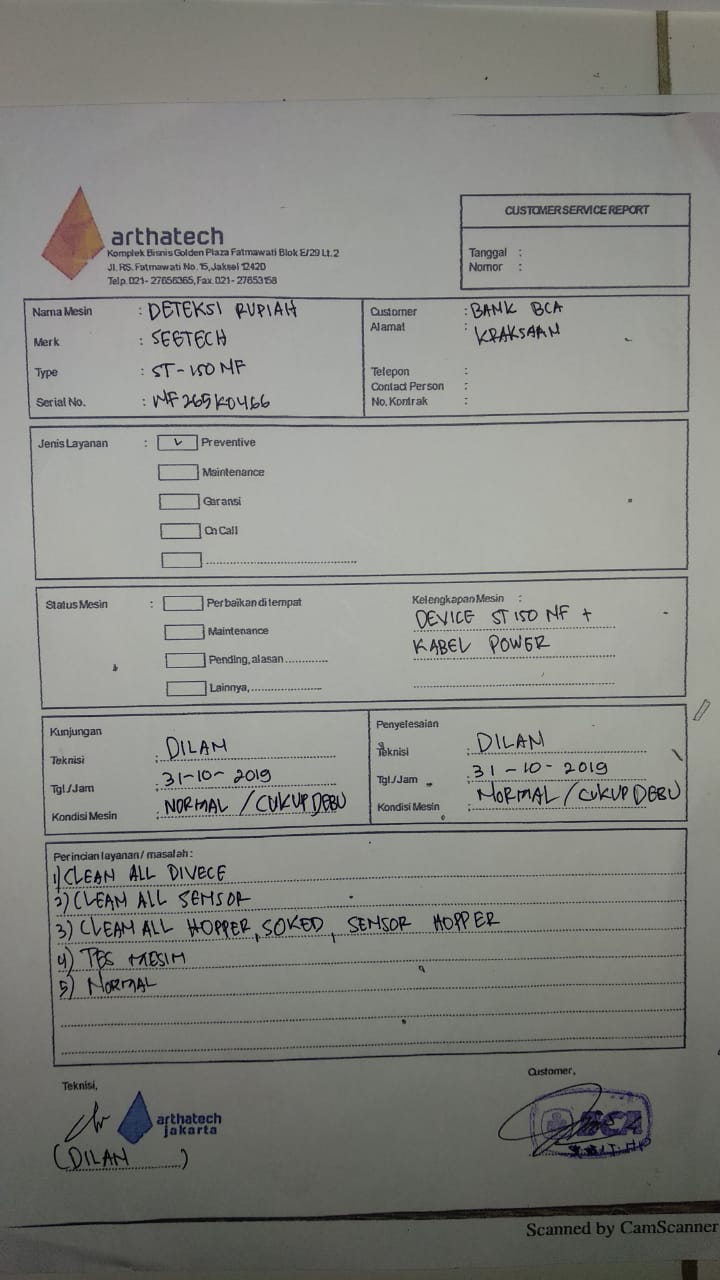 arthatech
Komplek Bisnis Golden Plaza Fatmawati Blok E/29 Lt.2
Jl. RS. Fatmawati No. 15, Jaksel 12420
Telp. 021- 27656365, Fax. 021- 27653158
CUSTOMER SERVICE REPORT
Tanggal :
Nomor :
Nama Mesin : DETEKSI RUPIAH
Merk : SEETECH
Type : ST-150 NF
Serial No. : NF265K0466
Customer : BANK BCA
Alamat : KRAKSAAN
Telepon :
Contact Person :
No. Kontrak :
Jenis Layanan : Preventive
Maintenance
Garansi
On Call
Status Mesin : Perbaikan di tempat
Maintenance
Pending, alasan
Lainnya,
Kelengkapan Mesin :
DEVICE ST 150 NF +
KABEL POWER
Kunjungan
Teknisi : DILAN
Tgl./Jam : 31-10-2019
Kondisi Mesin : NORMAL / CUKUP DEBU
Penyelesaian
Teknisi : DILAN
Tgl./Jam : 31-10-2019
Kondisi Mesin : NORMAL / CUKUP DEBU
Perincian layanan / masalah :
1) CLEAN ALL DIVECE
2) CLEAN ALL SENSOR
3) CLEAN ALL HOPPER, SOKED, SENSOR HOPPER
4) TES MESIN
5) NORMAL
Teknisi,
arthatech
jakarta
(DILAN)
Customer,
BCA
Scanned by CamScanner